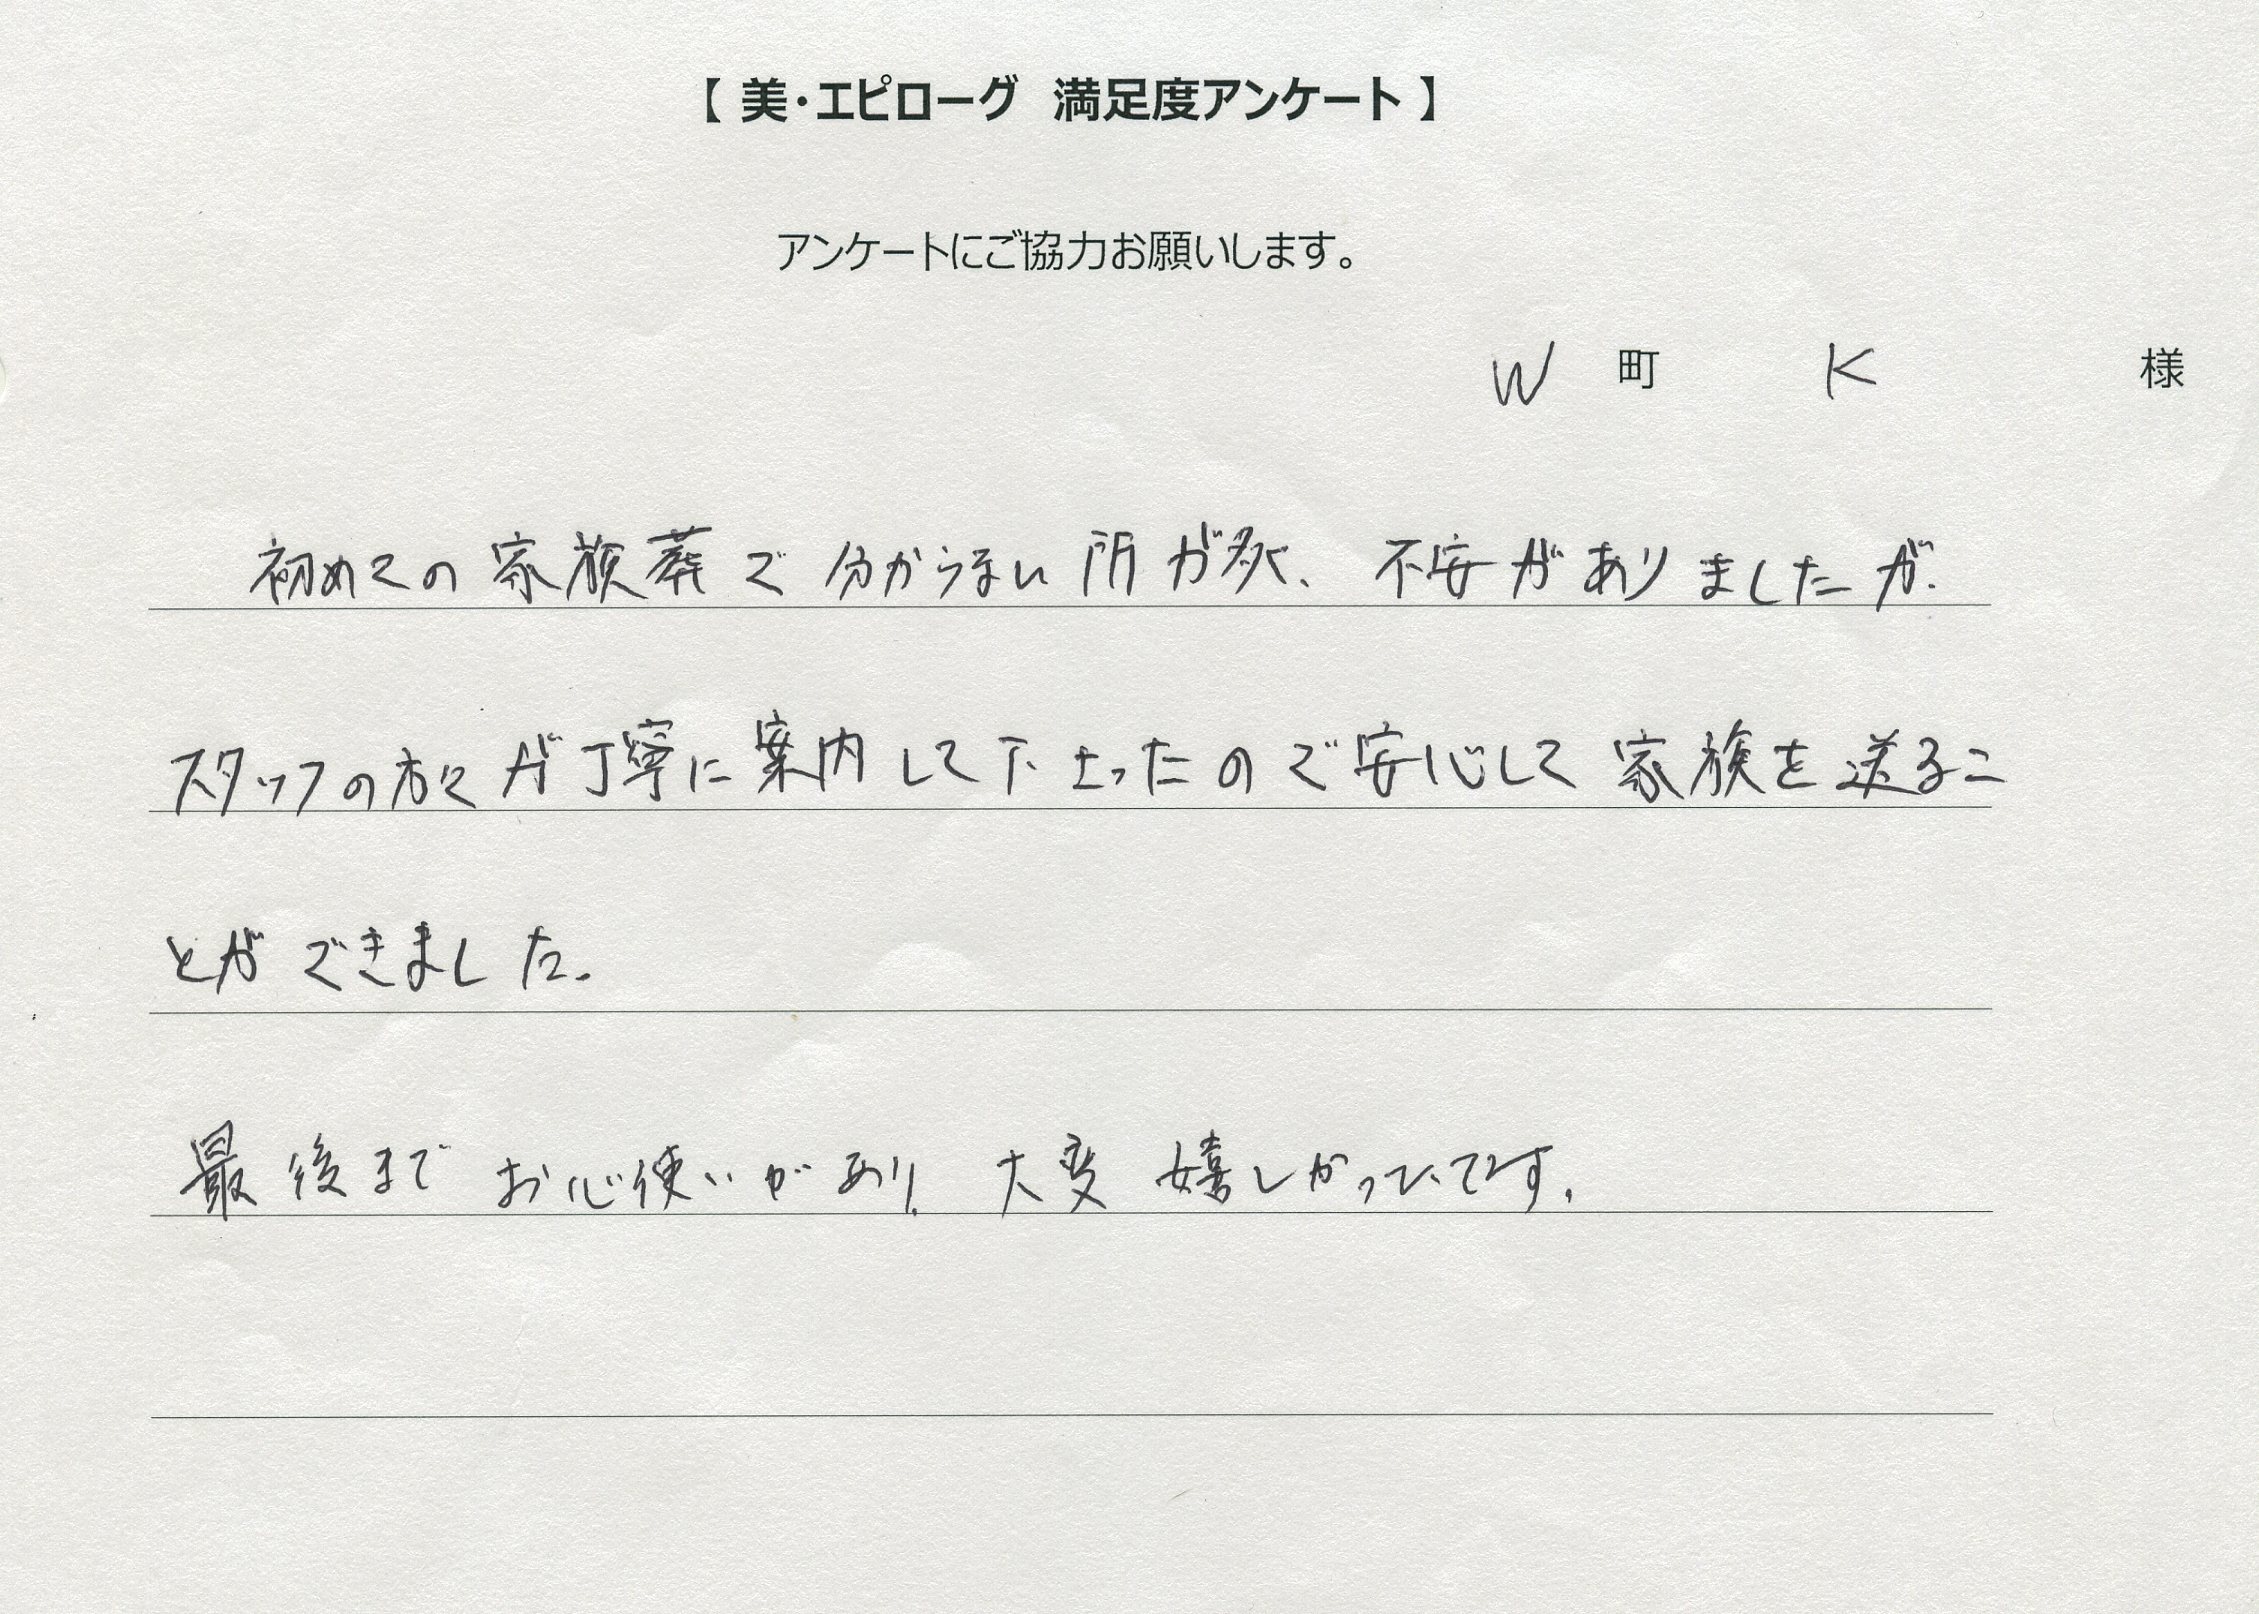 【 美・エピローグ 満足度アンケート 】
アンケートにご協力お願いします。
W 町 K 様
初めての家族葬で分からない所が多く、不安がありましたが、
スタッフの方々が丁寧に案内して下さったので安心して家族を送るこ
とができました。
最後までお心使いがあり、大変嬉しかったです。